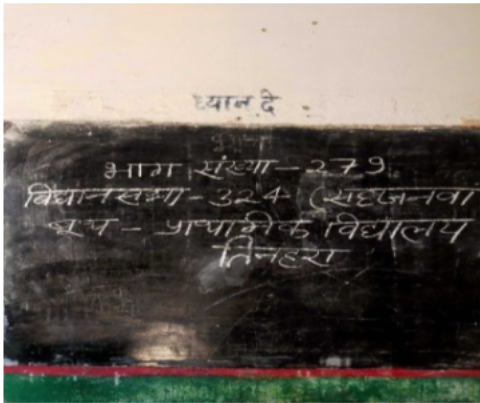 ध्यान दे
भाग संख्या - 279
विधानसभा - 324 (सहजनवां
बूथ - प्राथमिक विद्यालय
तिनहरा